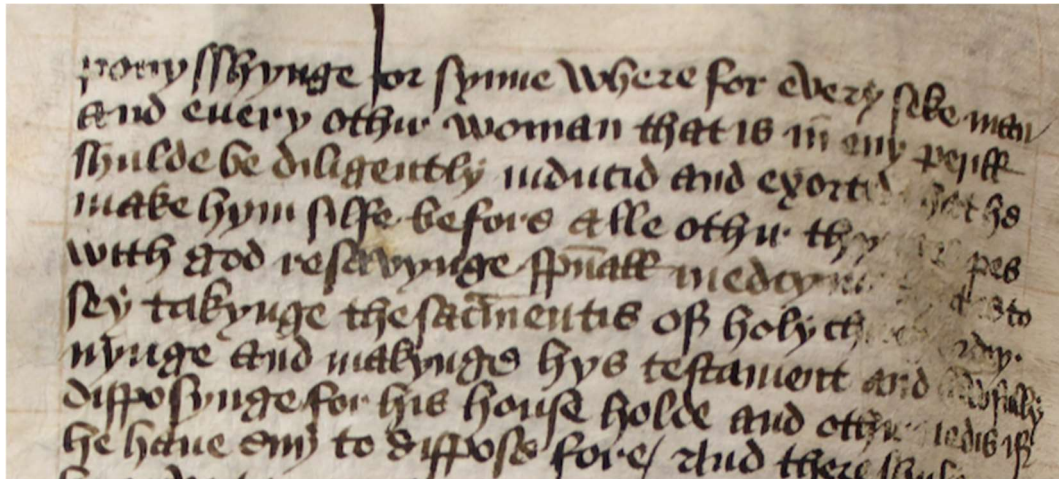 ponysshynge for synne Where for every seke man
And euery othir woman that is in eny perill
shulde be diligently inducid and exortid that he
make hym silfe before alle othir thynges pes
With god resavynge spūall medcyn to
sey takynge the sacmentis of holy ordey.
nynge and makynge hys testament and lawfully
disposynge for his house holde and othir nedis if
he haue eny to dispose fore / And there